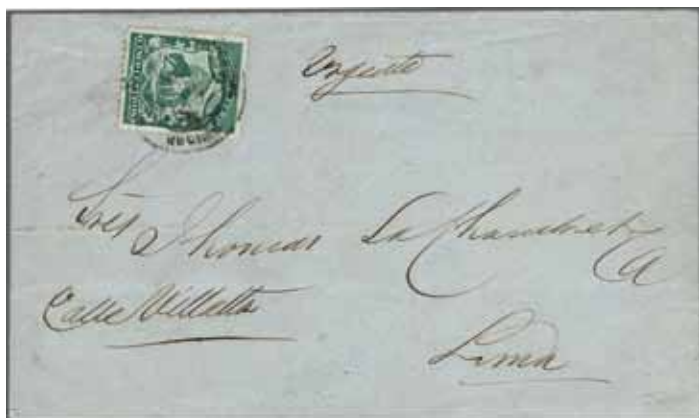 Urgente
Sres Thomas La Chambre
Ca
Calle Villalta
Lima